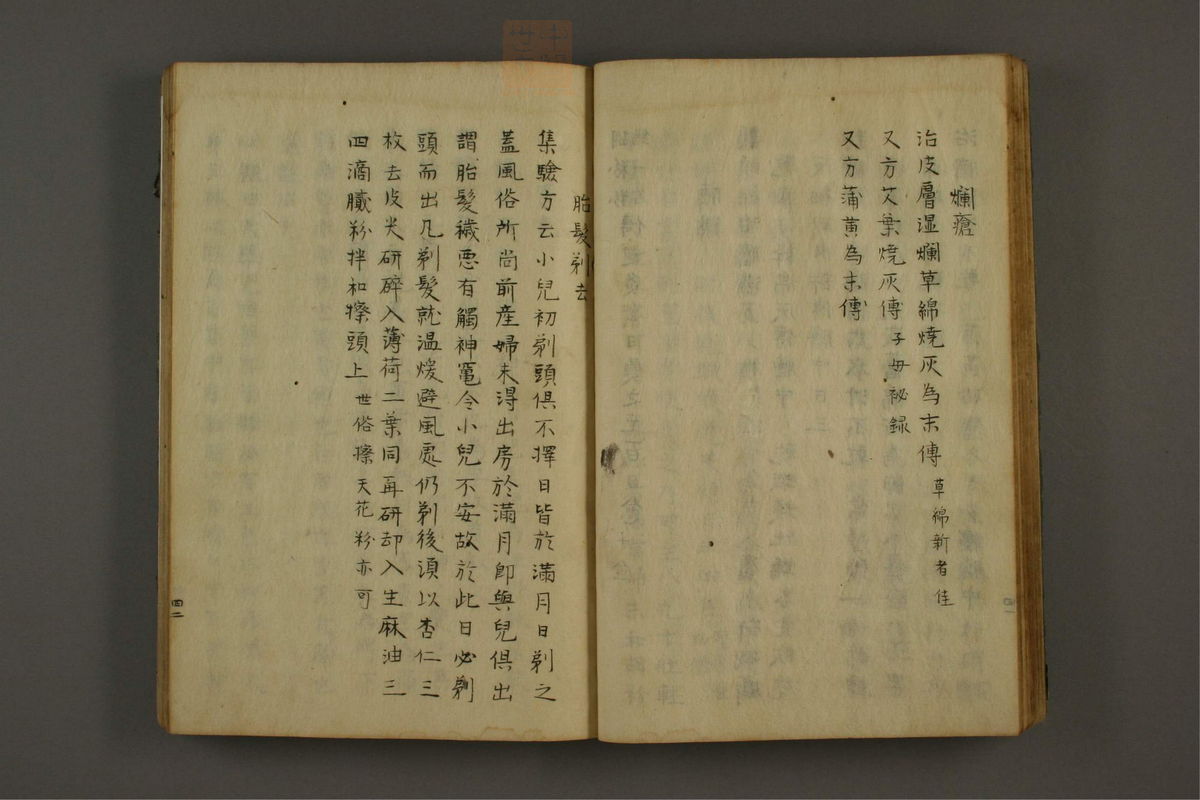 爛瘡
治皮層湿爛草綿燒灰為末傅 草綿新者佳
又方艾葉燒灰傅 子母秘録
又方蒲黄為末傅
胎髮剃去
集驗方云小兒初剃頭俱不擇日皆於滿月日剃之
蓋風俗所尚前産婦未淂出房於滿月即與兒俱出
謂胎髮穢悪有觸神竈令小兒不安故於此日必剃
頭而出凡剃髮就温煖避風處仍剃後湏以杏仁三
枚去皮尖研碎入薄荷二葉同再研却入生麻油三
四滴膩粉拌和擦頭上 世俗擦天花粉亦可
四二